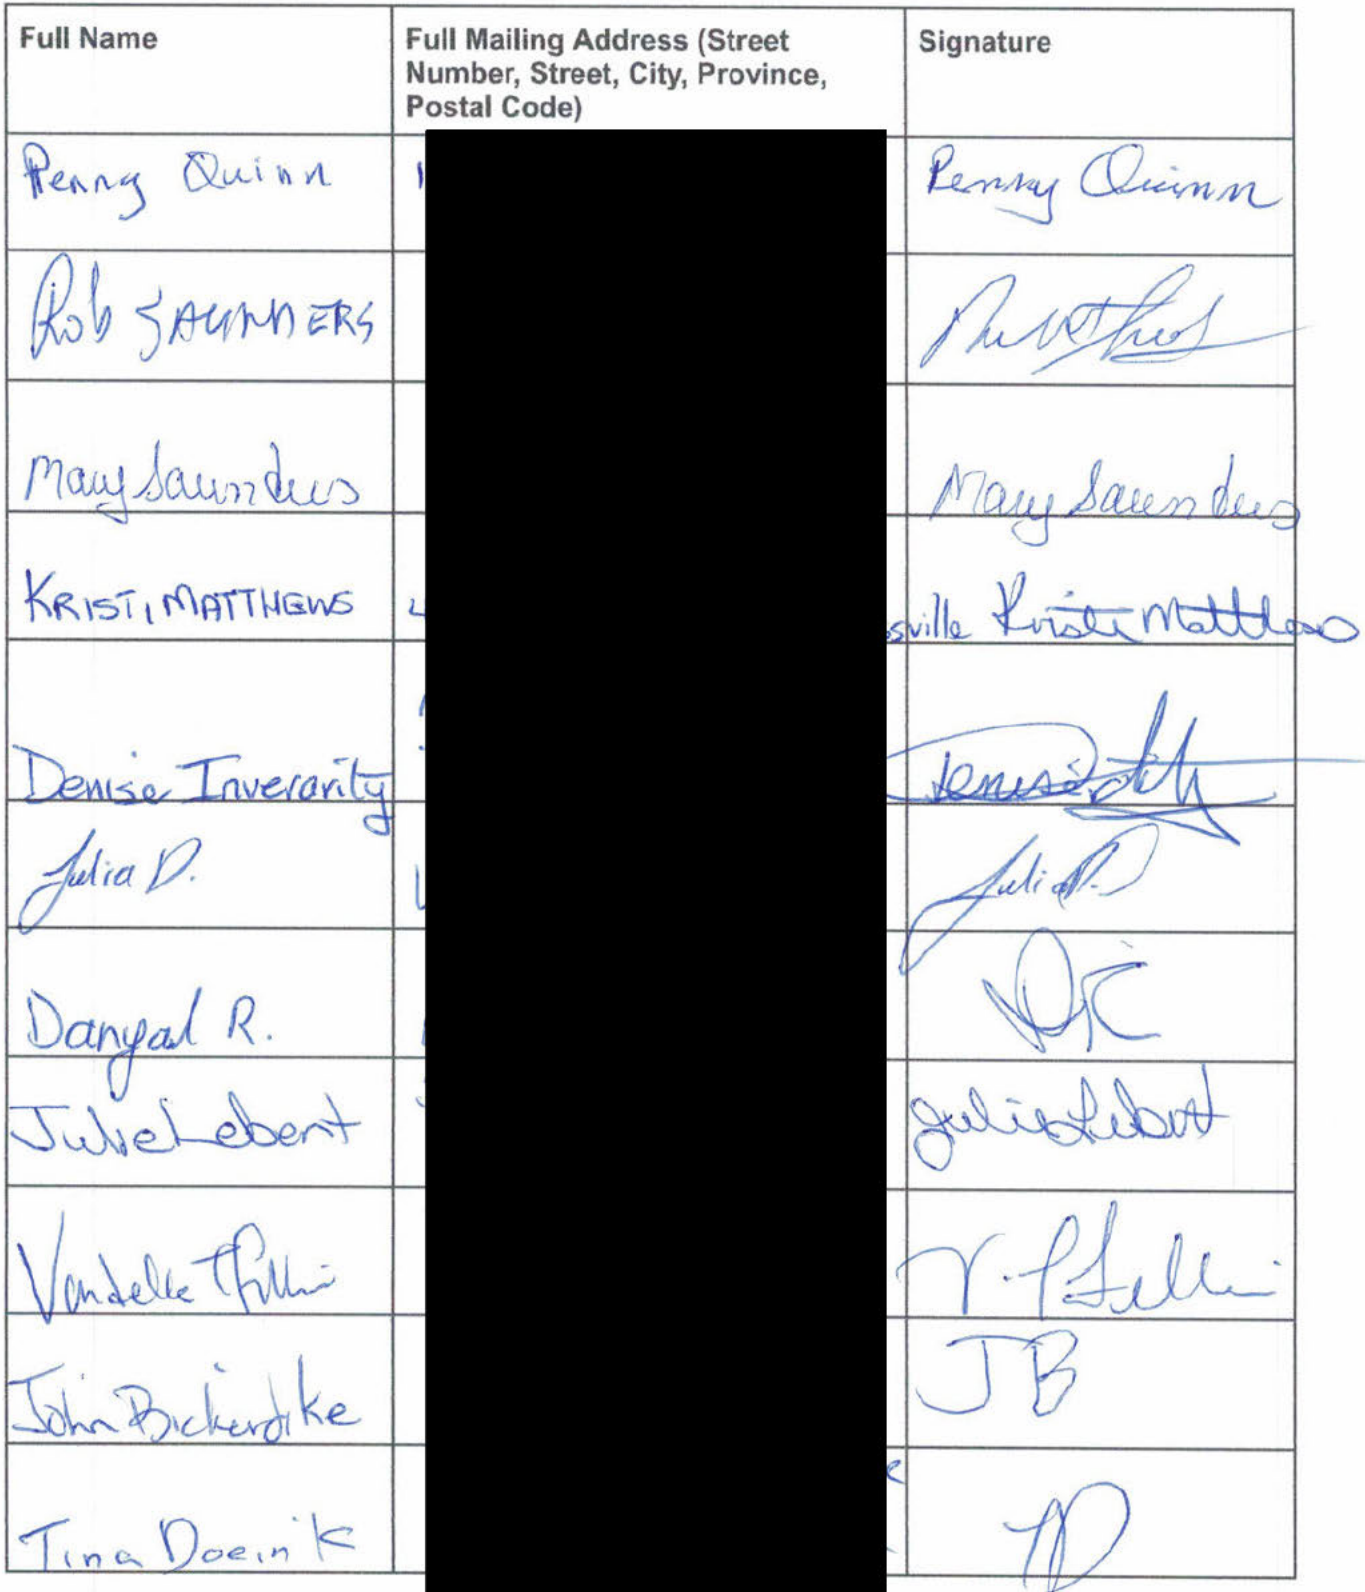 Full Name
Full Mailing Address (Street
Number, Street, City, Province,
Postal Code)
Signature
Penny Quinn
Penny Quinn
Rob SAUNDERS
Mary Saunders
Mary Saunders
KRISTI MATTHEWS
sville
Kristi Matthews
Denise Inverarity
Denise
Julia D.
Julia D.
Danyal R.
Julie Lebert
Julie Lebert
Vandelle
John Bickerdike
JB
Tina Doeinik
TD